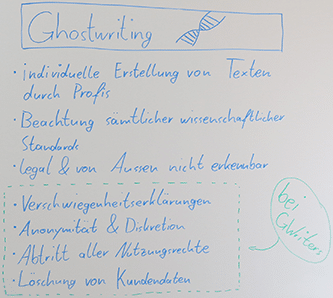 Ghostwriting
• individuelle Erstellung von Texten
durch Profis
• Beachtung sämtlicher wissenschaftlicher
Standards
• legal & von Aussen nicht erkennbar
• Verschwiegenheitserklärungen
• Anonymität & Diskretion
• Abtritt aller Nutzungsrechte
• Löschung von Kundendaten
bei
GWriters